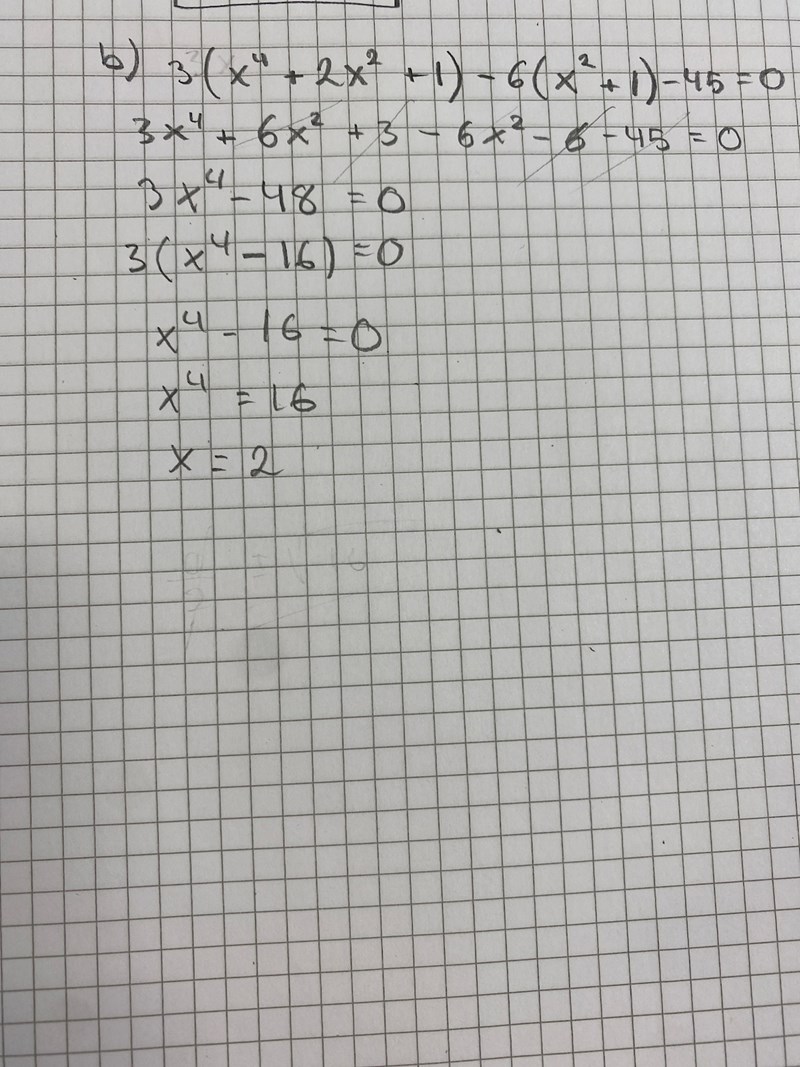 b) 3(x⁴ + 2x² + 1) - 6(x² + 1) - 45 = 0
3x⁴ + 6x² + 3 - 6x² - 6 - 45 = 0
3x⁴ - 48 = 0
3(x⁴ - 16) = 0
x⁴ - 16 = 0
x⁴ = 16
x = 2